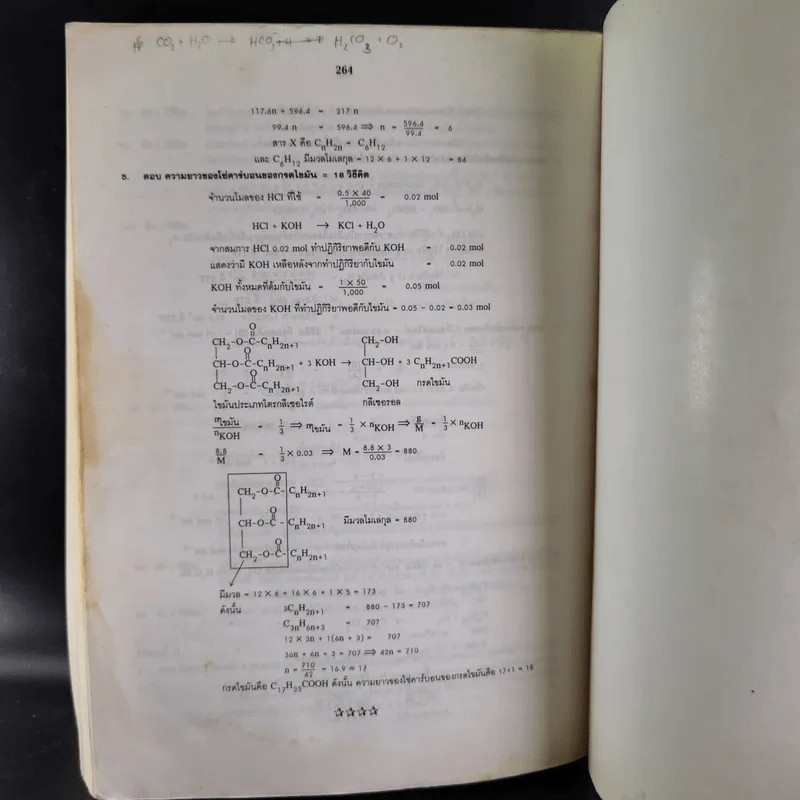 CO₂ + H₂O → HCO₃⁻ + H → H₂CO₃ + O₂
264
117.6n + 596.4 = 217 n
99.4 n = 596.4 ⟹ n = 596.4/99.4 = 6
สาร X คือ CnH2n = C6H12
และ C6H12 มีมวลโมเลกุล = 12 × 6 + 1 × 12 = 84
5. ตอบ ความยาวของโซ่คาร์บอนของกรดไขมัน = 18 วิธีคิด
จำนวนโมลของ HCl ที่ใช้ = 0.5 × 40/1,000 = 0.02 mol
HCl + KOH → KCl + H2O
จากสมการ HCl 0.02 mol ทำปฏิกิริยาพอดีกับ KOH = 0.02 mol
แสดงว่ามี KOH เหลือหลังจากทำปฏิกิริยากับไขมัน = 0.02 mol
KOH ทั้งหมดที่ต้มกับไขมัน = 1 × 50/1,000 = 0.05 mol
จำนวนโมลของ KOH ที่ทำปฏิกิริยาพอดีกับไขมัน = 0.05 - 0.02 = 0.03 mol
O
CH2-O-C-CnH2n+1 CH2-OH
O
CH-O-C-CnH2n+1 + 3 KOH → CH-OH + 3 CnH2n+1COOH
O
CH2-O-C-CnH2n+1 CH2-OH กรดไขมัน
ไขมันประเภทไตรกลีเซอไรด์ กลีเซอรอล
mไขมัน/nKOH = 1/3 ⟹ mไขมัน = 1/3 × nKOH ⟹ g/M = 1/3 × nKOH
8.8/M = 1/3 × 0.03 ⟹ M = 8.8 × 3/0.03 = 880
O
CH2-O-C-CnH2n+1
O
CH-O-C-CnH2n+1 มีมวลโมเลกุล = 880
O
CH2-O-C-CnH2n+1
มีมวล = 12 × 6 + 16 × 6 + 1 × 5 = 173
ดังนั้น 3CnH2n+1 = 880 - 173 = 707
C3nH6n+3 = 707
12 × 3n + 1(6n + 3) = 707
36n + 6n + 3 = 707 ⟹ 42n = 710
n = 710/42 = 16.9 ≈ 17
กรดไขมันคือ C17H35COOH ดังนั้น ความยาวของโซ่คาร์บอนของกรดไขมันคือ 17+1 = 18
☆☆☆☆